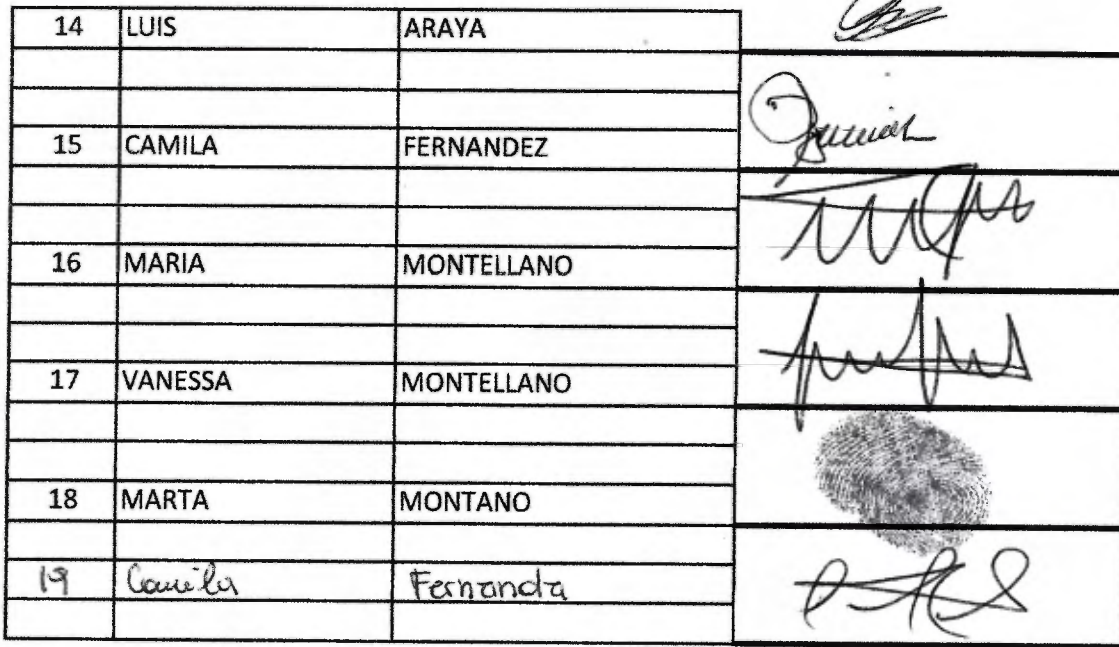 14 LUIS ARAYA
15 CAMILA FERNANDEZ
16 MARIA MONTELLANO
17 VANESSA MONTELLANO
18 MARTA MONTANO
19 Camila Fernanda